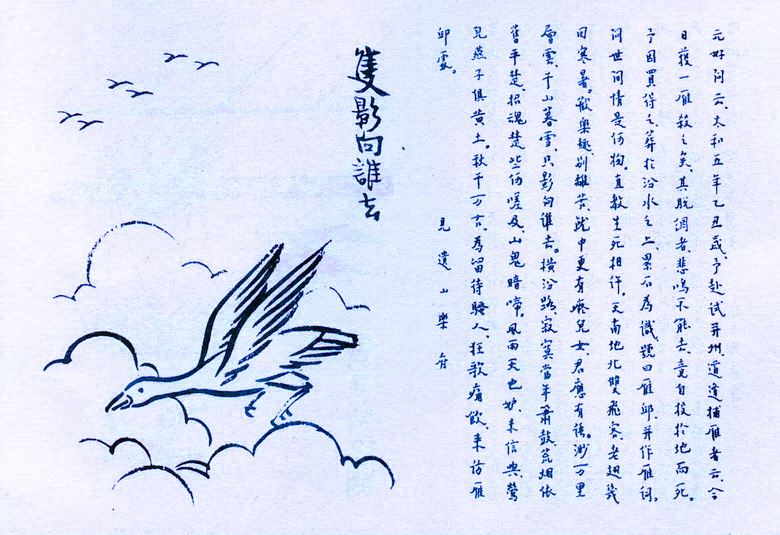 元好问云、太和五年乙丑歲、予赴試并州、道逢捕雁者云、今
日獲一雁殺之矣、其脱網者、悲鳴不能去、竟自投於地而死。
予因買得之、葬於汾水之上、累石為識、號曰雁邱、并作雁词。
问世间情是何物、直教生死相許。天南地北雙飛客、老翅幾
回寒暑。歡樂趣、别離苦、就中更有痴兒女、君應有語。渺万里
層雲、千山暮雪、只影向誰去。横汾路、寂寞當年簫鼓、荒烟依
舊平楚、招魂楚些何嗟及、山鬼暗啼。風雨天也妒、未信與、鶯
兒燕子俱黄土。秋千万古、為留待騷人、狂歌痛飲、来访雁
邱處。
見遺山樂府
隻影向誰去